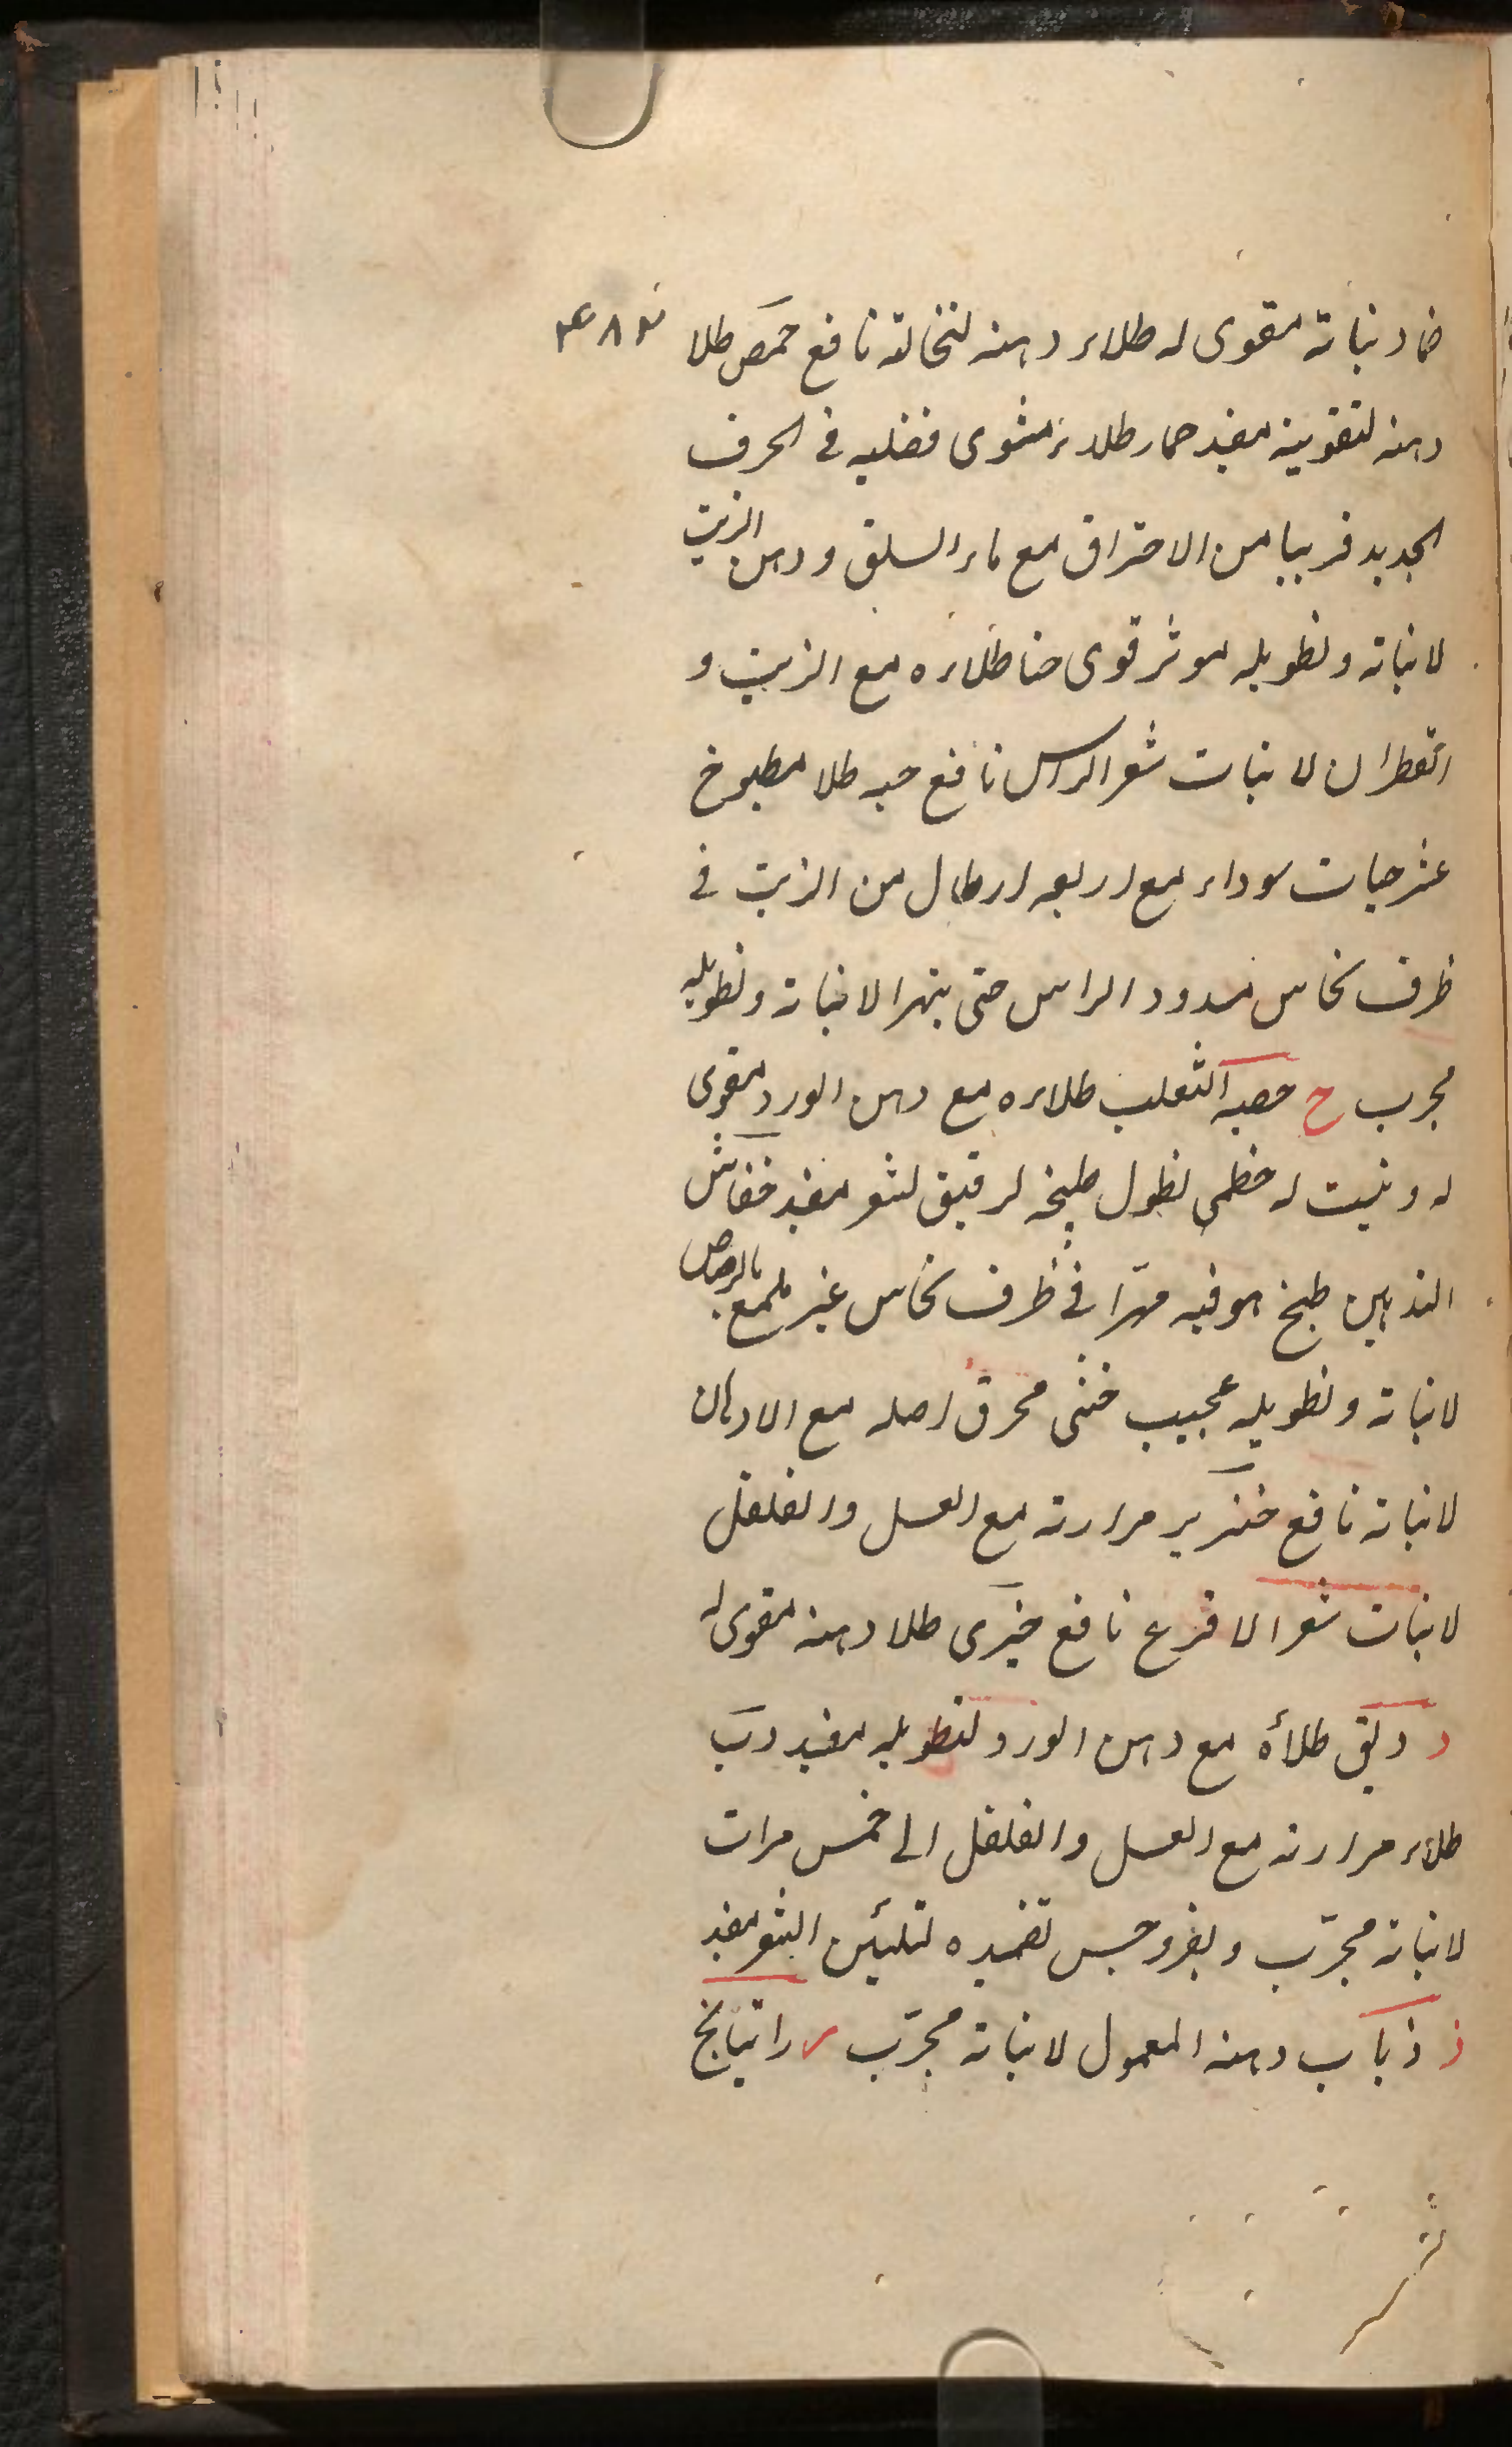 ضماد نباته مقوى له طلاء دهنه لنخالة نافع حمص طلا
دهنه لتقوية مفيد حمار طلاء مشوى فضليه فى الخرف
الجديد قريبا من الاحتراق مع ماء السلق ودهن الزيت
لانباته وتطويله موثر قوى حنا طلاءه مع الزيت و
القطران لانبات شعر الراس نافع حيه طلا مطبوخ
عشر حيات سوداء مع اربعه ارطال من الزيت فى
ظرف نحاس مسدود الراس حتى يتهرا لانباته وتطويله
مجرب ح خصيه الثعلب طلاءه مع دهن الورد مقوى
له و ينبت له خطمى نطول طبيخه لرقيق لشعر مفيد خفاش
الذهين طبخ هو فيه مهرّا فى ظرف نحاس غير ملمع بالرصاص
لانباته وتطويله عجيب خنثى محرق اصله مع الادهان
لانباته نافع خنزير مرارته مع العسل والفلفل
لانبات شعر الاقرع نافع خيرى طلا دهنه مقوى له
د دبق طلاه مع دهن الورد لتطويله مفيد دب
طلاء مرارته مع العسل والفلفل الى خمس مرات
لانباته مجرّب تضميده لتليين الشعر مفيد
ذ ذباب دهنه المعمول لانباته مجرّب ر راتيانج